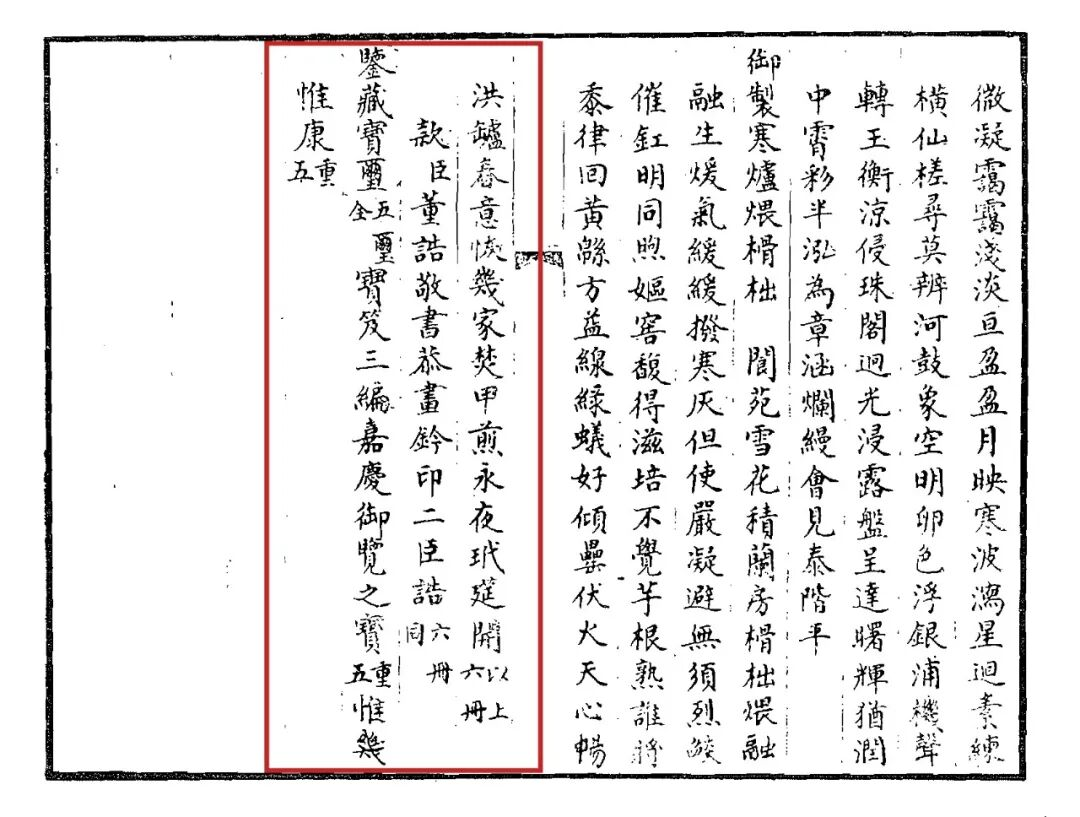 微凝靄靄淺淡亘盈盈月映寒波瀉星迴素練
橫仙槎尋莫辨河鼓象空明卯色浮銀浦機聲
轉玉衡涼侵珠閣迥光浸露盤呈達曙輝猶潤
中霄彩半泓為章涵爛縵會見泰階平
御製寒爐煨榾柮 閬苑雪花積蘭房榾柮煨融
融生煖氣緩緩撥寒灰但使嚴凝避無須烈燄
催釭明同煦嫗窖馥得滋培不覺芋根熟誰將
黍律回黃緜方益線綠蟻好傾罍伏火天心暢
洪鑪春意恢幾家焚甲煎永夜玳筵開以上六冊
款臣董誥敬書恭畫鈐印二臣誥六冊同
鑒藏寶璽五璽全寶笈三編嘉慶御覽之寶五重惟幾
惟康五重